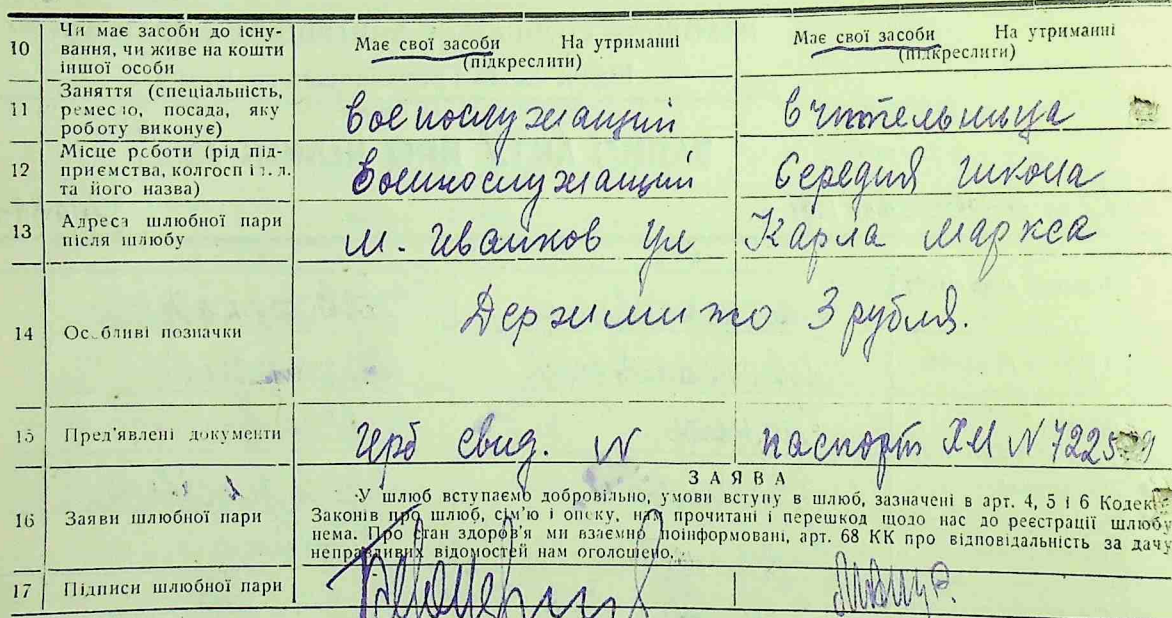 10 Чи має засоби до існу-
вання, чи живе на кошти
іншої особи
Має свої засоби На утриманні
(підкреслити)
Має свої засоби На утриманні
(підкреслити)
11 Заняття (спеціальність,
ремесло, посада, яку
роботу виконує)
Воєнослужащий
Вчительница
12 Місце роботи (рід під-
приємства, колгосп і т. п.
та його назва)
Воєнослужащий
Середня школа
13 Адреса шлюбної пари
після шлюбу
м. Иванков ул Карла Маркса
14 Особливі позначки
Держмито 3 рубля.
15 Пред'явлені документи
свид. N
паспорт ХМ N 7225
16 Заяви шлюбної пари
ЗАЯВА
У шлюб вступаємо добровільно, умови вступу в шлюб, зазначені в арт. 4, 5 і 6 Кодексу
Законів про шлюб, сім'ю і опеку, нам прочитані і перешкод щодо нас до реєстрації шлюбу
нема. Про стан здоров'я ми взаємно поінформовані, арт. 68 КК про відповідальність за дачу
неправдивих відомостей нам оголошено.
17 Підписи шлюбної пари